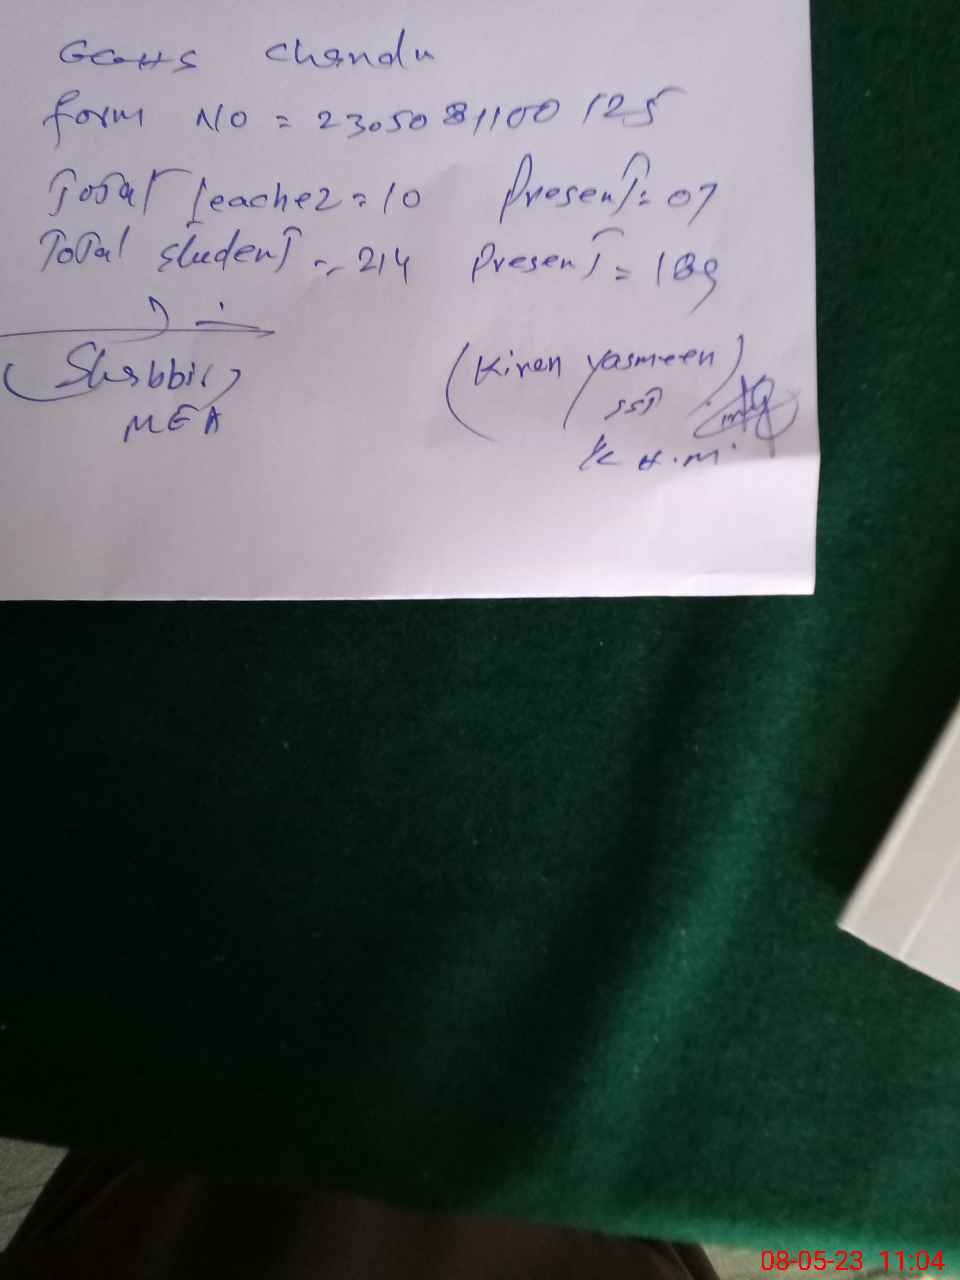 GGHS Chandu
form NO = 2305081100125
Total Teacher = 10 Present = 07
Total student = 214 Present = 189
(Shabbir)
MEA
(Kiren Yasmeen)
SST
08-05-23 11:04